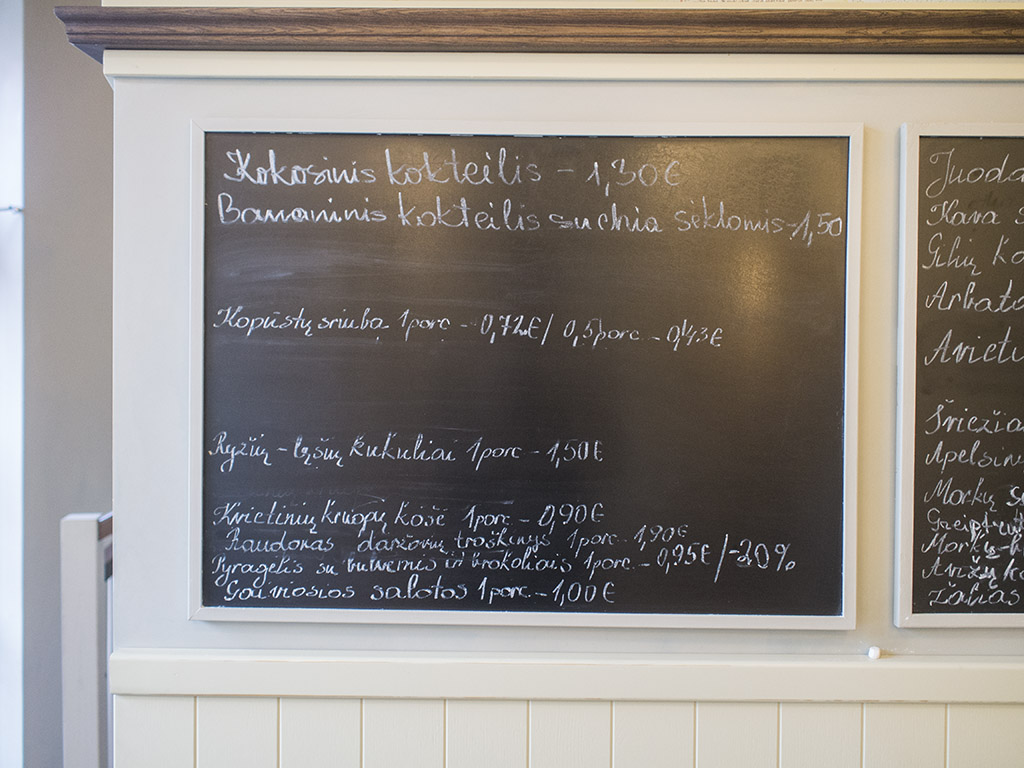 Kokosinis kokteilis - 1,30€
Bananinis kokteilis su chia sėklomis - 1,50
Kopūstų sriuba 1porc - 0,72€ / 0,5porc. - 0,43€
Ryžių - lęšių kukuliai 1porc - 1,50€
Kvietinių kruopų košė 1porc. - 0,90€
Raudonas daržovių troškinys 1porc. 1,90€
Pyragėlis su bulvėmis ir brokoliais 1porc. - 0,95€ / -20%
Gaiviosios salotos 1porc. - 1,00€
Juoda
Kava s
Gilių ko
Arbata
Avietu
Šviežia
Apelsin
Morkų
Morkų
Avižų
Žalias